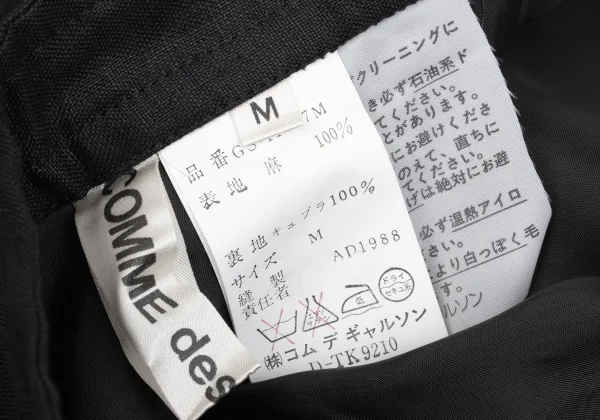 M
COMME des
品番GS
7M
表地 麻 100%
裏地 キュプラ100%
サイズ M
縫製
責任者 AD1988
エンソ
サラシ
低
ドライ
セキユ系
㈱コム デ ギャルソン
D-TK9210
クリーニングに
き必ず石油系ド
てください。
とがあります。
にお避けくださ
のえて、直ちに
てください。
げは絶対にお避
必ず温熱アイロ
さい。
より白っぽく毛
す。
ルソン